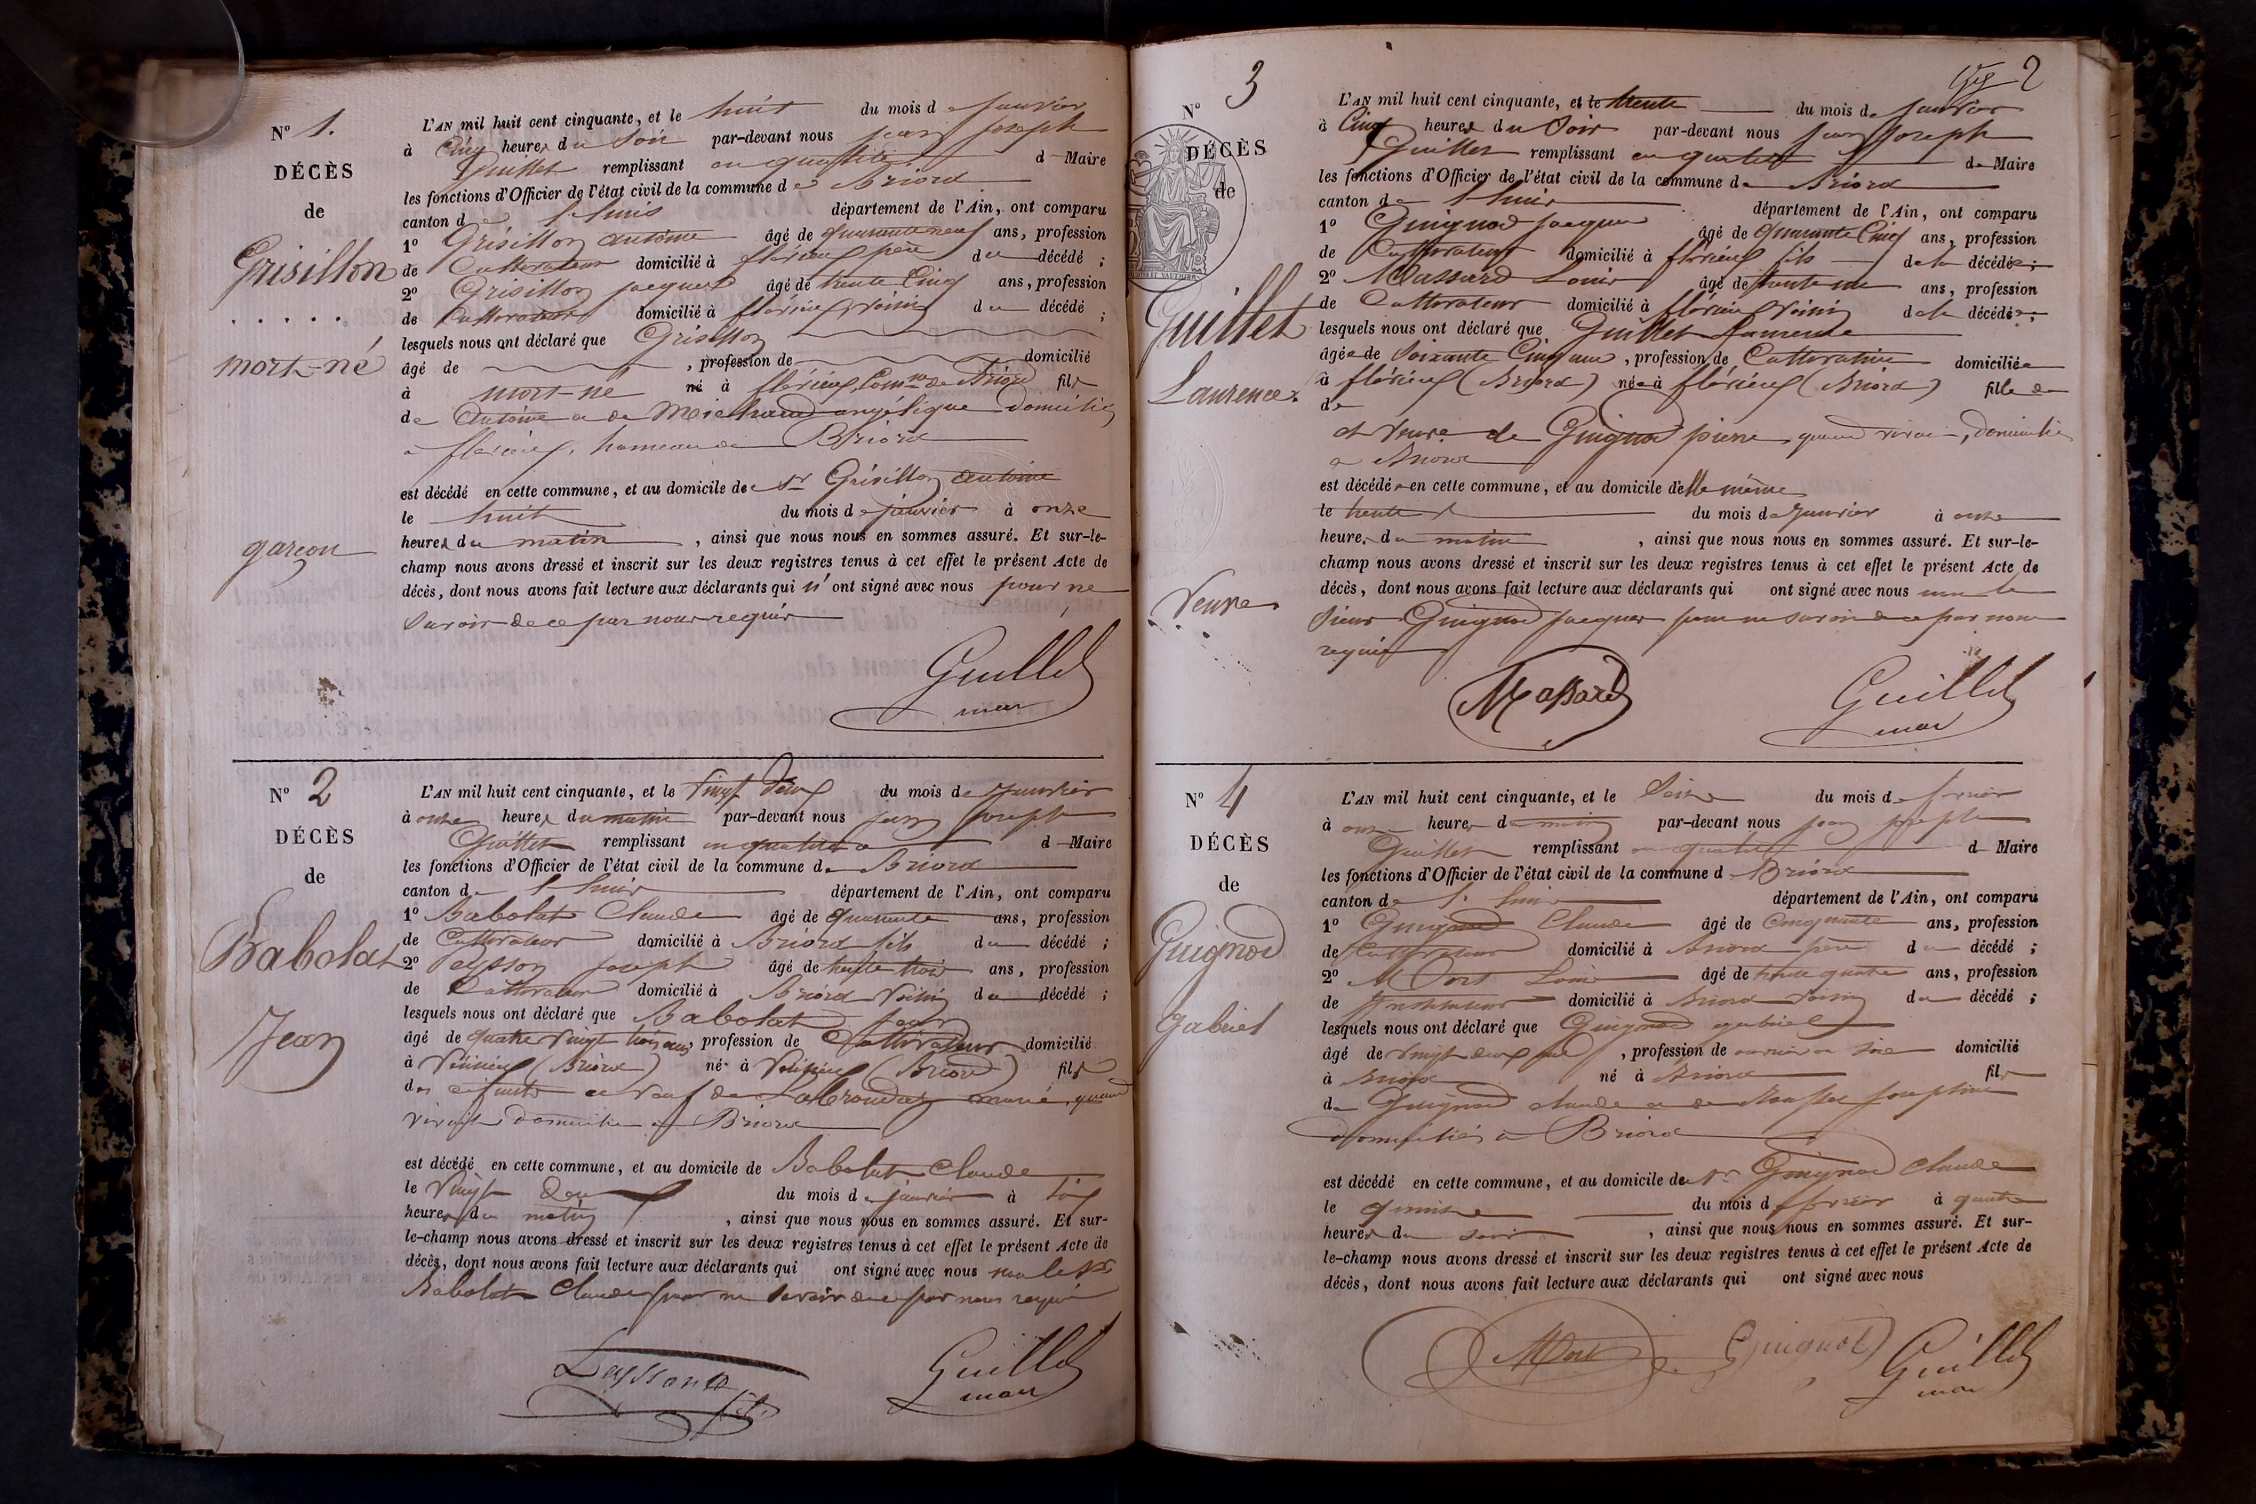 N° 1.
DÉCÈS
de
Grisillon
.....
mort-né
garçon
L'AN mil huit cent cinquante, et le huit du mois de janvier
à Cinq heures du Soir par-devant nous jean joseph
Guillet remplissant en qualité de Maire
les fonctions d'Officier de l'état civil de la commune de Briord
canton de département de l'Ain, ont comparu
1° Grisillon antoine âgé de quarante neuf ans, profession
de Cultivateur domicilié à père du décédé ;
2° Grisillon jacques âgé de trente Cinq ans, profession
de Cultivateur domicilié à voisin du décédé ;
lesquels nous ont déclaré que Grisillon
âgé de , profession de domicilié
à mort-né né à Comne de Briord fils
de Antoine et de angélique domiciliés
à hameau de Briord
est décédé en cette commune, et au domicile de Sr Grisillon antoine
le huit du mois de janvier à onze
heures du matin , ainsi que nous nous en sommes assuré. Et sur-le-
champ nous avons dressé et inscrit sur les deux registres tenus à cet effet le présent Acte de
décès, dont nous avons fait lecture aux déclarants qui n'ont signé avec nous pour ne
Savoir de ce par nous requis
Guillet
maire
N° 2
DÉCÈS
de
Babolat
Jean
L'AN mil huit cent cinquante, et le vingt deux du mois de Janvier
à onze heures du matin par-devant nous jean joseph
Guillet remplissant en qualité de Maire
les fonctions d'Officier de l'état civil de la commune de Briord
canton de département de l'Ain, ont comparu
1° Babolat Claude âgé de quarante ans, profession
de Cultivateur domicilié à Briord fils du décédé ;
2° joseph âgé de trente trois ans, profession
de Cultivateur domicilié à Briord Voisin du décédé ;
lesquels nous ont déclaré que Babolat jean
âgé de quatre vingt trois ans, profession de Cultivateur domicilié
à (Briord) né à (Briord) fils
des défunts et veuf de marie, quand
vivait domiciliée à Briord
est décédé en cette commune, et au domicile de Babolat Claude
le Vingt deux du mois de janvier à
heures du matin , ainsi que nous nous en sommes assuré. Et sur-
le-champ nous avons dressé et inscrit sur les deux registres tenus à cet effet le présent Acte de
décès, dont nous avons fait lecture aux déclarants qui ont signé avec nous non le Sr
Babolat Claude pour ne savoir de ce par nous requis
Guillet
maire
2
N° 3
DÉCÈS
de
Guillet
Laurence
Veuve
L'AN mil huit cent cinquante, et le trente du mois de janvier
à Cinq heures du Soir par-devant nous jean joseph
Guillet remplissant en qualité de Maire
les fonctions d'Officier de l'état civil de la commune de Briord
canton de département de l'Ain, ont comparu
1° Guignod jacques âgé de quarante Cinq ans, profession
de Cultivateur domicilié à fils de la décédée ;
2° Massard Louis âgé de trente un ans, profession
de Cultivateur domicilié à voisin de la décédée ;
lesquels nous ont déclaré que Guillet Laurence
âgée de Soixante Cinq ans, profession de Cultivatrice domiciliée
à (Briord) née à (Briord) fille de
de
et veuve de Guignod pierre quand vivait, domicilié
à Briord
est décédée en cette commune, et au domicile d'elle même
le trente du mois de janvier à onze
heures du matin , ainsi que nous nous en sommes assuré. Et sur-le-
champ nous avons dressé et inscrit sur les deux registres tenus à cet effet le présent Acte de
décès, dont nous avons fait lecture aux déclarants qui ont signé avec nous non le
Sieur Guignod jacques pour ne savoir de ce par nous
requis
Massard
Guillet
maire
N° 4
DÉCÈS
de
Guignod
gabriel
L'AN mil huit cent cinquante, et le Seize du mois de
à onze heures du matin par-devant nous jean joseph
Guillet remplissant en qualité de Maire
les fonctions d'Officier de l'état civil de la commune de Briord
canton de département de l'Ain, ont comparu
1° Guignod Claude âgé de Cinquante ans, profession
de Cultivateur domicilié à Briord père du décédé ;
2° Mort Louis âgé de trente quatre ans, profession
de Instituteur domicilié à Briord Voisin du décédé ;
lesquels nous ont déclaré que Guignod gabriel
âgé de vingt deux ans, profession de ouvrier en soie domicilié
à Briord né à Briord fils
de Guignod claude et de joséphine
domiciliés à Briord
est décédé en cette commune, et au domicile de Sr Guignod Claude
le quinze du mois de à quatre
heures du soir , ainsi que nous nous en sommes assuré. Et sur-
le-champ nous avons dressé et inscrit sur les deux registres tenus à cet effet le présent Acte de
décès, dont nous avons fait lecture aux déclarants qui ont signé avec nous
Mort Guignod Guillet
maire